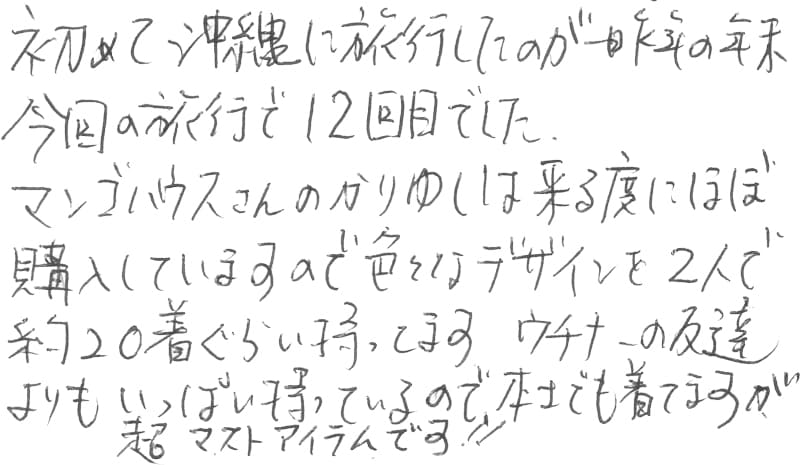 初めて沖縄に旅行したのが一昨年の年末
今回の旅行で12回目でした.
マンゴハウスさんのかりゆしは来る度にほぼ
購入していますので色々なデザインを2人で
約20着ぐらい持ってます ウチナーの友達
よりもいっぱい持っているので本土でも着てますが
超マストアイテムです!!